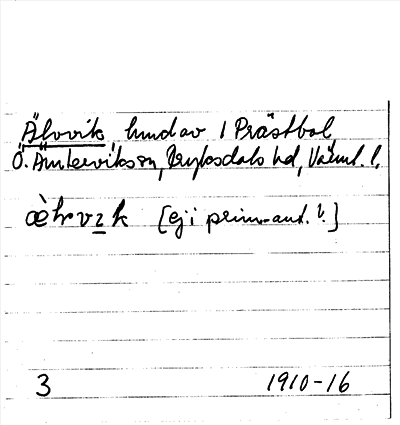 Älvvik, hmd av 1 Prästbol,
Ö. Ämterviks sn, Fryksdals hd, Värml. l.
[ej i prim.-ant. l.]
3 1910-16